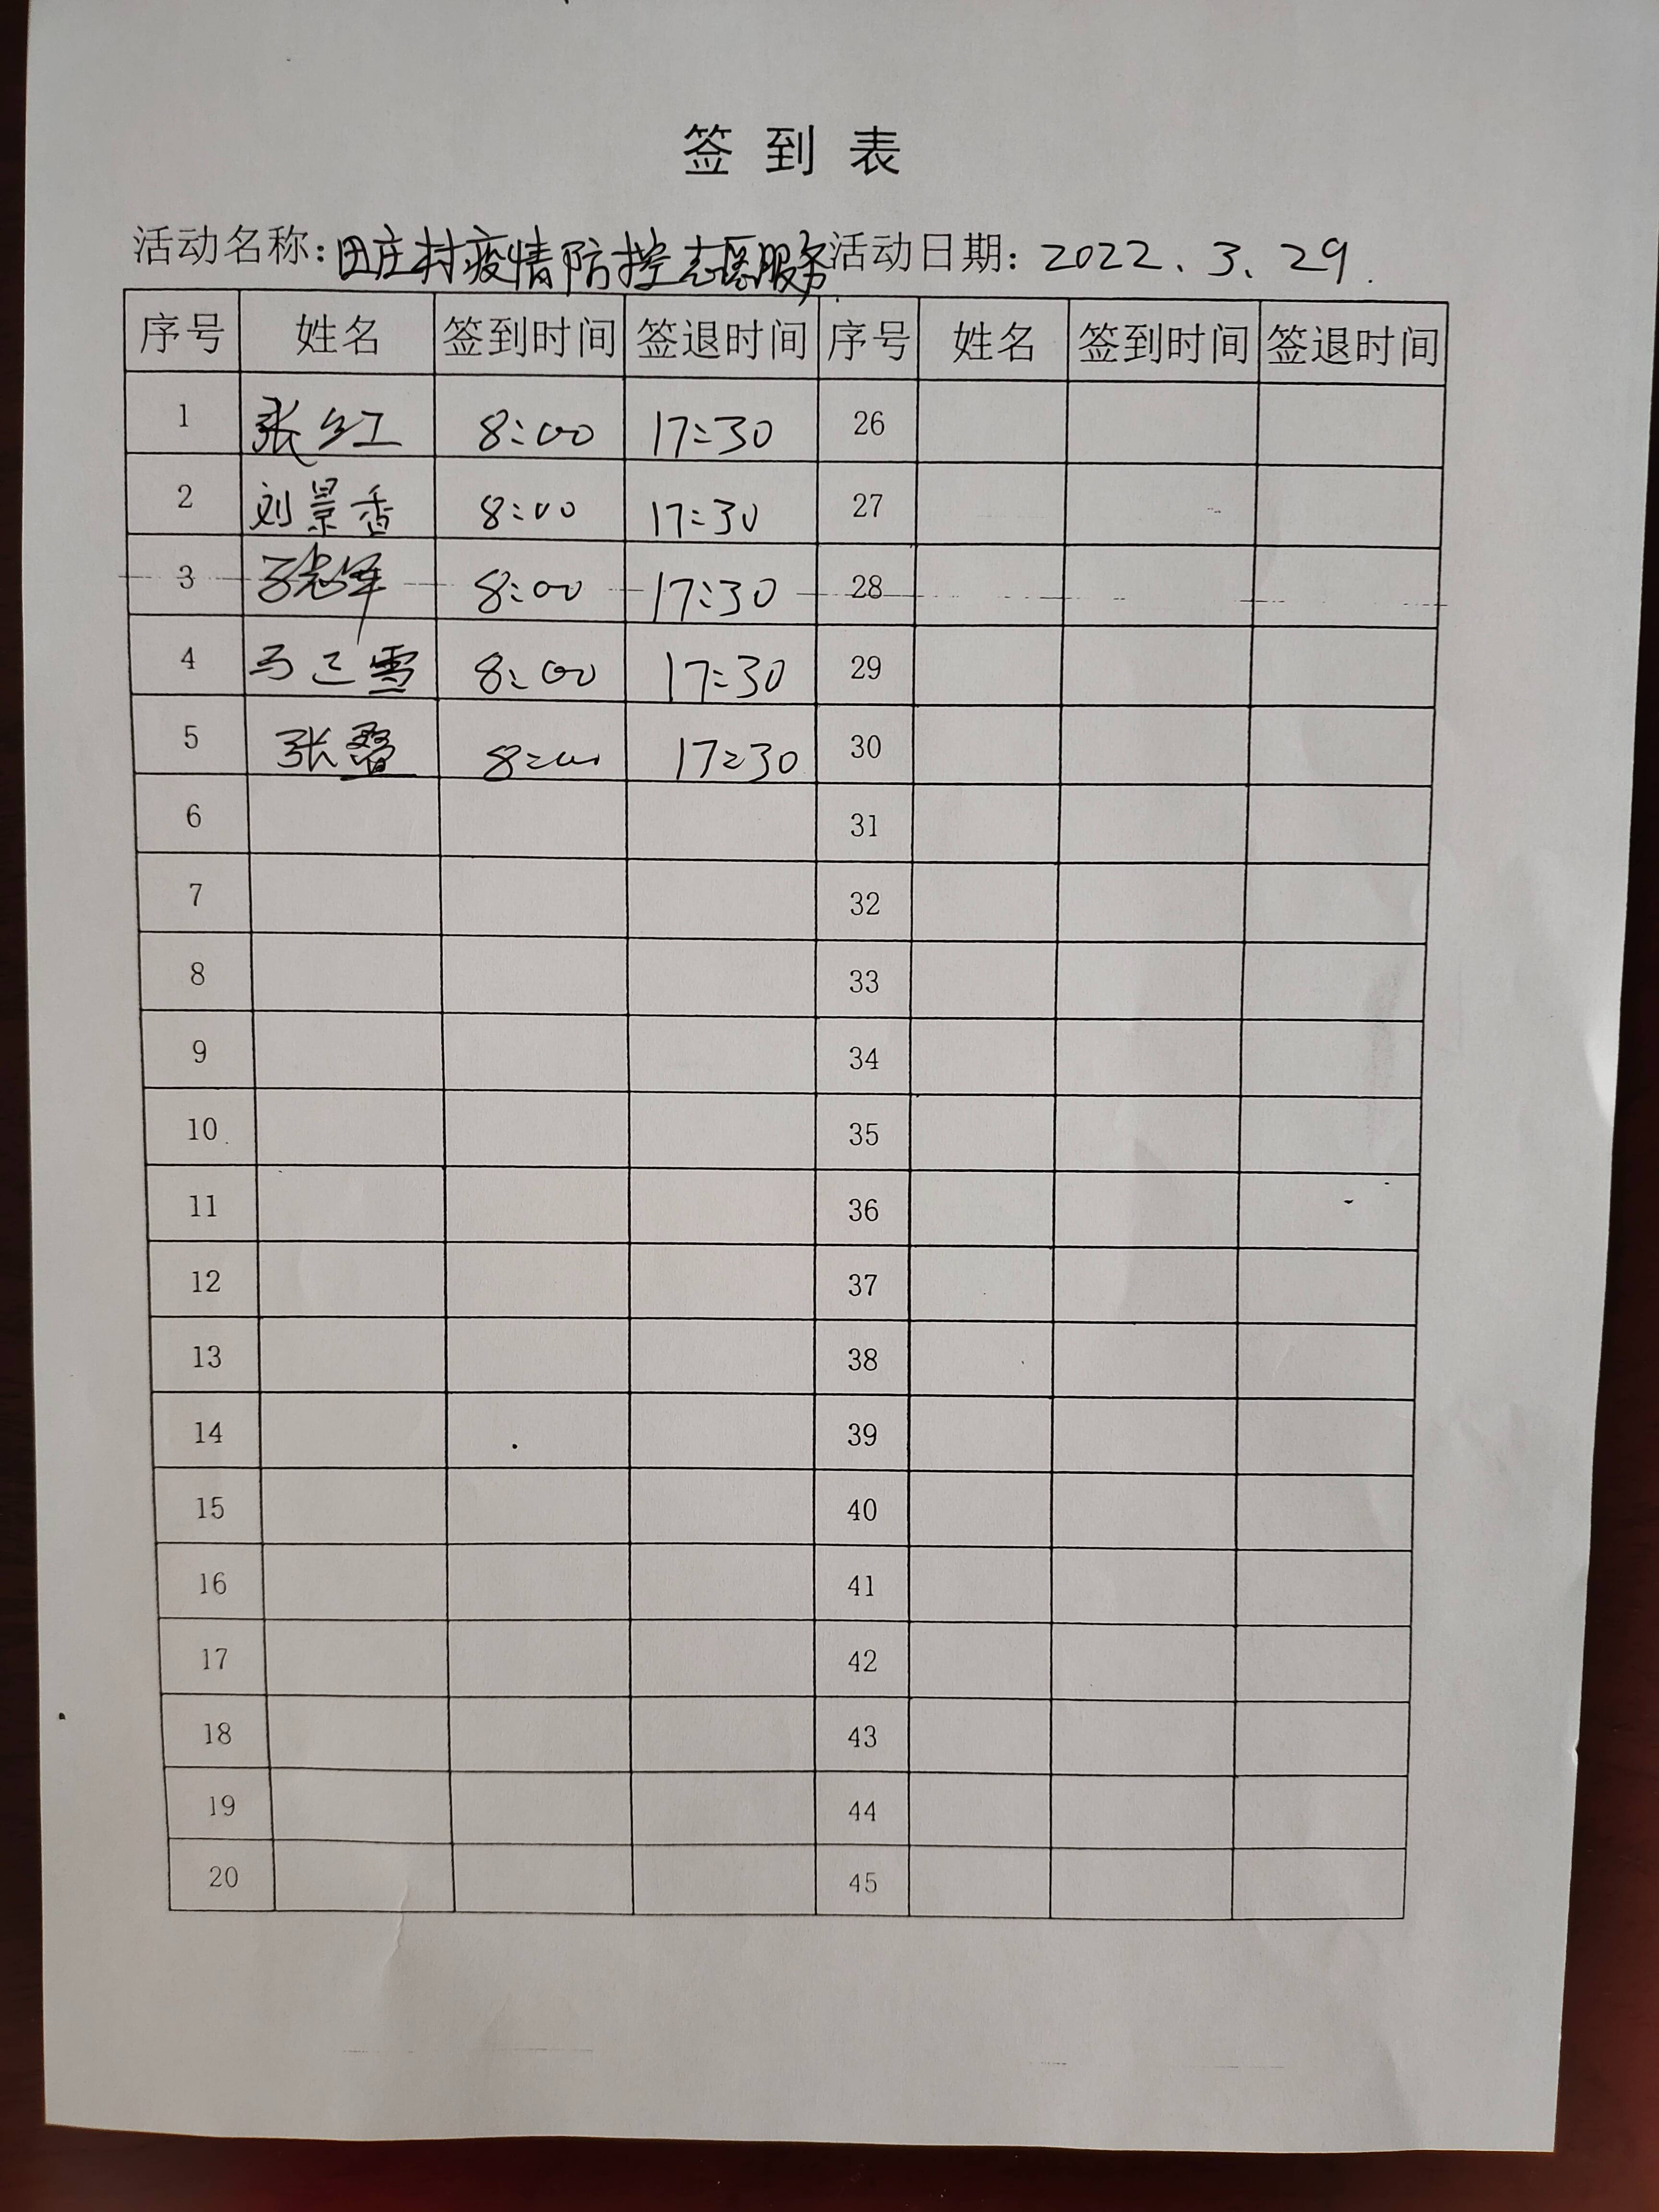 签到表
活动名称：田庄村疫情防控志愿服务 活动日期：2022.3.29.
序号 姓名 签到时间 签退时间 序号 姓名 签到时间 签退时间
1 张红 8:00 17:30 26
2 刘景香 8:00 17:30 27
3 8:00 17:30 28
4 马 雪 8:00 17:30 29
5 张 8:00 17:30 30
6 31
7 32
8 33
9 34
10 35
11 36
12 37
13 38
14 39
15 40
16 41
17 42
18 43
19 44
20 45